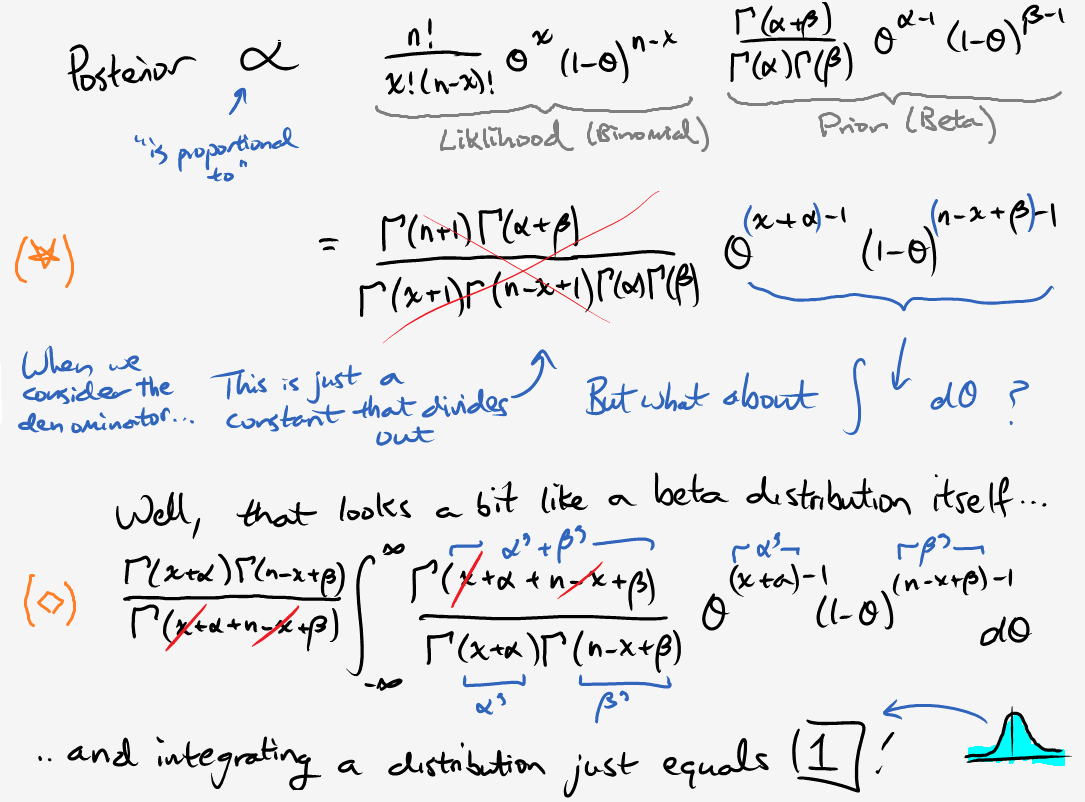 Posterior ∝ n!/(x!(n-x)!) θ^x (1-θ)^(n-x) Γ(α+β)/(Γ(α)Γ(β)) θ^(α-1) (1-θ)^(β-1)
"is proportional to"
Liklihood (Binomial)
Prior (Beta)
(☆) = Γ(n+1)Γ(α+β)/(Γ(x+1)Γ(n-x+1)Γ(α)Γ(β)) θ^((x+α)-1) (1-θ)^((n-x+β)-1)
When we
consider the
denominator...
This is just a
constant that divides
out
But what about ∫ ↓ dθ ?
Well, that looks a bit like a beta distribution itself...
α' + β'
α'
β'
(◇) Γ(x+α)Γ(n-x+β)/Γ(x+α+n-x+β) ∫_{-∞}^{∞} Γ(x+α+n-x+β)/(Γ(x+α)Γ(n-x+β)) θ^((x+α)-1) (1-θ)^((n-x+β)-1) dθ
α'
β'
..and integrating a distribution just equals 1!